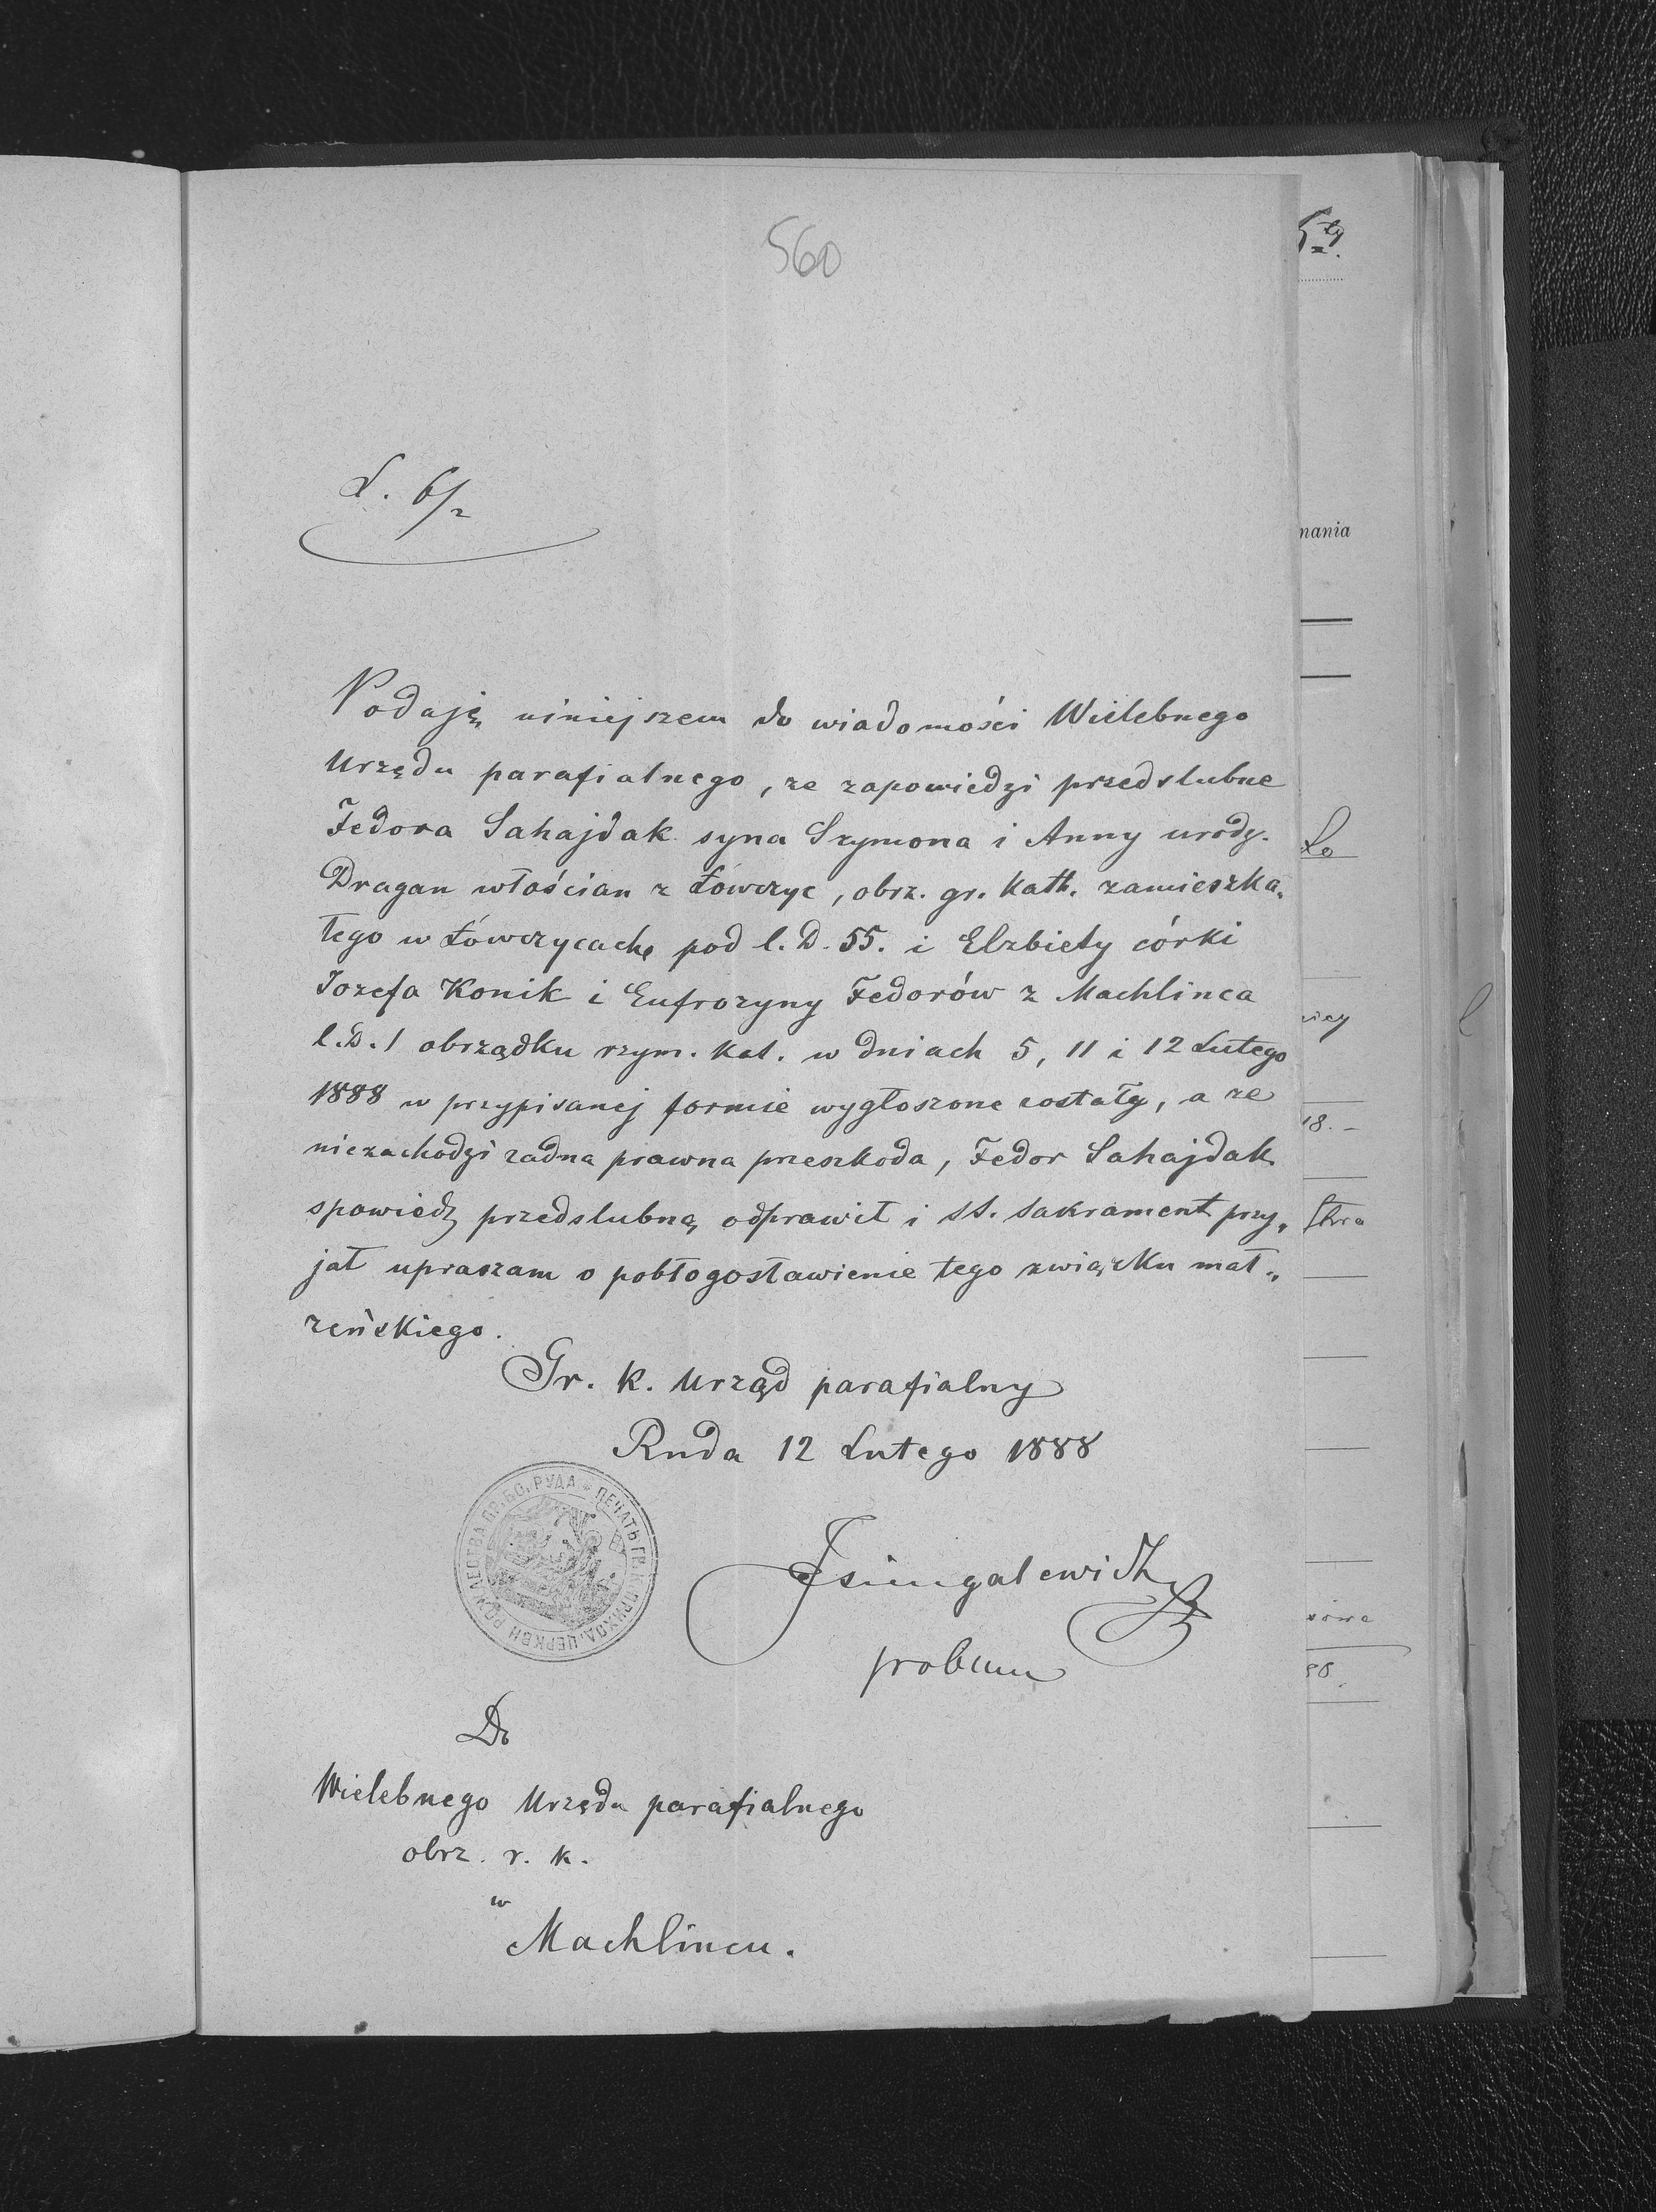 560
L. 6/2
Podaję niniejszem do wiadomości Wielebnego
Urzędu parafialnego, ze zapowiedzi przedslubne
Fedora Sahajdak syna Szymona i Anny urodz.
Dragan włościan z Łowczyc, obrz. gr. kath. zamieszka„
łego w Łówczycach pod l. D. 55. i Elzbiety córki
Jozefa Konik i Eufrozyny Fedorów z Machlinca
l. D. 1 obrządku rzym. kat. w dniach 5, 11 i 12 Lutego
1888 w przypisanej formie wygłoszone zostały, a ze
niezachodzi zadna prawna przeszkoda, Fedor Sahajdak
spowiedz przedslubną odprawił i SS. Sakrament przy„
jął upraszam o pobłogosławienie tego związku mał„
zeńskiego.
Gr. k. Urząd parafialny
Ruda 12 Lutego 1888
ПЕЧАТЬ ГР. К. ПРИХОД. ЦЕРКВИ РОЖДЕСТВА ПР. БО. РУДА
Do
Wielebnego Urzędu parafialnego
obrz. r. k.
w
Machlincu.
mania
18. -